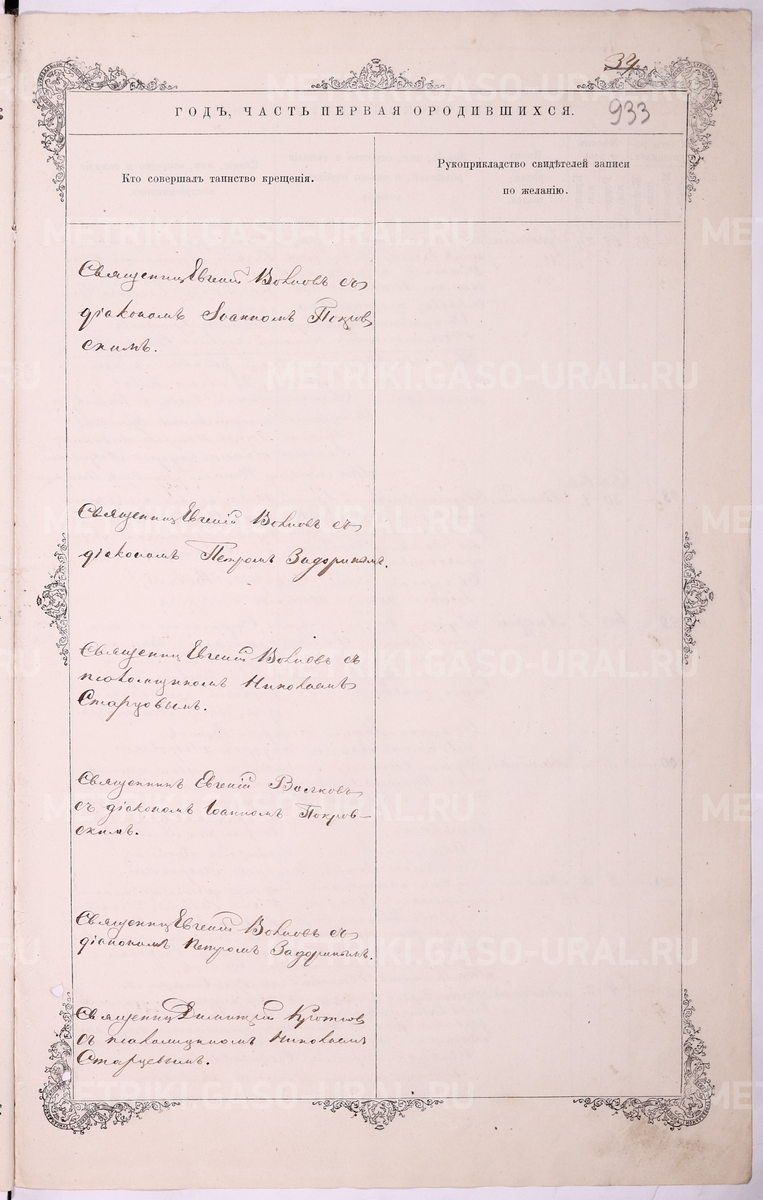 34
933
ГОДЪ, ЧАСТЬ ПЕРВАЯ ОРОДИВШИХСЯ.
Кто совершалъ таинство крещенія.
Рукоприкладство свидѣтелей записи
по желанію.
Священникъ Евгеній Волковъ съ
діакономъ Іоанномъ Покров
скимъ.
Священникъ Евгеній Волковъ съ
діакономъ Петромъ Задоринымъ.
Священникъ Евгеній Волковъ съ
псаломщикомъ Николаемъ
Старцовымъ.
Священникъ Евгеній Волковъ
съ діакономъ Іоанномъ Покров-
скимъ.
Священникъ Евгеній Волковъ съ
діакономъ Петромъ Задоринымъ.
Священникъ Димитрій
съ псаломщикомъ Николаемъ
Старцевымъ.
METRIKI.GASO-URAL.RU